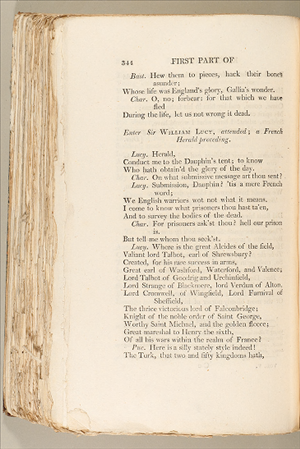 344 FIRST PART OF
Bast. Hew them to pieces, hack their bones
asunder;
Whose life was England's glory, Gallia's wonder.
Char. O, no; forbear: for that which we have
fled
During the life, let us not wrong it dead.
Enter Sir WILLIAM LUCY, attended; a French
Herald preceding.
Lucy. Herald,
Conduct me to the Dauphin's tent; to know
Who hath obtain'd the glory of the day.
Char. On what submissive message art thou sent?
Lucy. Submission, Dauphin? 'tis a mere French
word;
We English warriors wot not what it means.
I come to know what prisoners thou hast ta'en,
And to survey the bodies of the dead.
Char. For prisoners ask'st thou? hell our prison
is.
But tell me whom thou seek'st.
Lucy. Where is the great Alcides of the field,
Valiant lord Talbot, earl of Shrewsbury?
Created, for his rare success in arms,
Great earl of Washford, Waterford, and Valence;
Lord Talbot of Goodrig and Urchinfield,
Lord Strange of Blackmere, lord Verdun of Alton,
Lord Cromwell, of Wingfield, Lord Furnival of
Sheffield,
The thrice victorious lord of Falconbridge;
Knight of the noble order of Saint George,
Worthy Saint Michael, and the golden fleece;
Great mareshal to Henry the sixth,
Of all his wars within the realm of France?
Puc. Here is a silly stately style indeed!
The Turk, that two and fifty kingdoms hath,